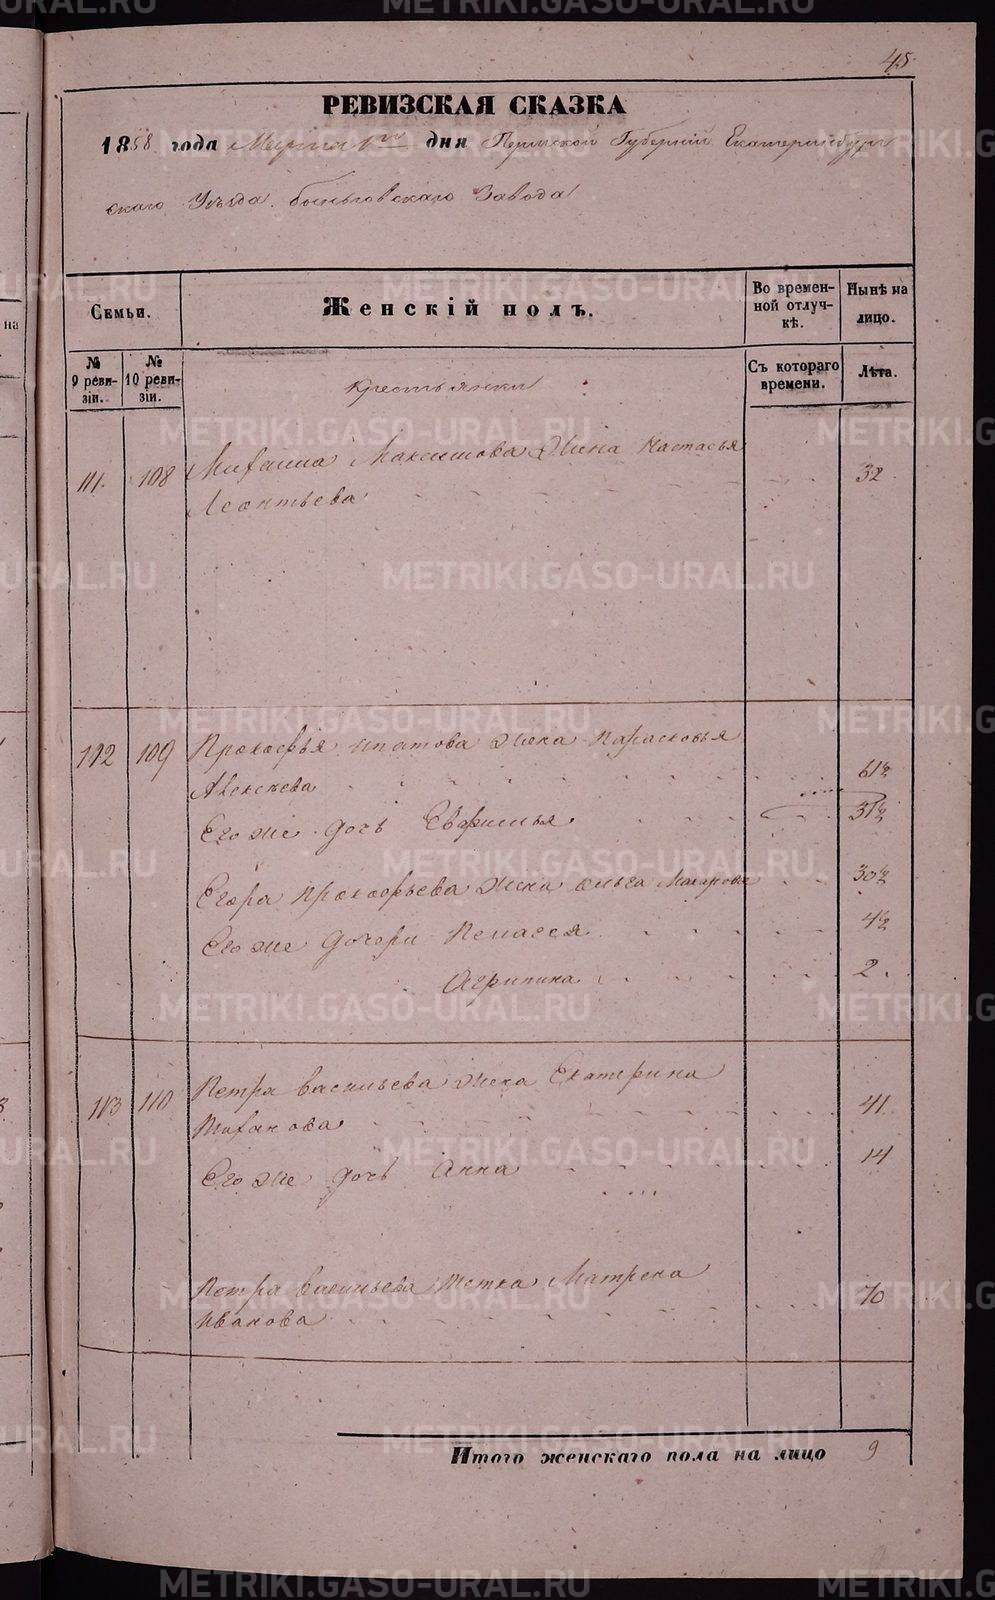 45
РЕВИЗСКАЯ СКАЗКА
1858 года Марта 1го дня Пермской Губерніи Екатеринбург
скаго Уѣзда Быньговскаго Завода
Семьи.
Женскій полъ.
Во времен-
ной отлуч-
кѣ.
Нынѣ на
лицо.
№
9 реви-
зіи.
№
10 реви-
зіи.
Съ котораго
времени.
Лѣта.
Крестьянки
111. 108 Михаила Максимова Жена Настасья
Леонтьева 32
112 109 Прокофья Ипатова Жена Парасковья
Алексѣева 61½
Его же дочь Евфимья 31½
Егора Прокофьева Жена Ольга Макарова 30½
Его же Дочери Пелагея 4½
Агрипина 2
113 110 Петра Васильева Жена Екатерина
41
Его же дочь Анна 14
Петра Васильева Тетка Матрена
Иванова 70
Итого женскаго пола на лицо 9
METRIKI.GASO-URAL.RU